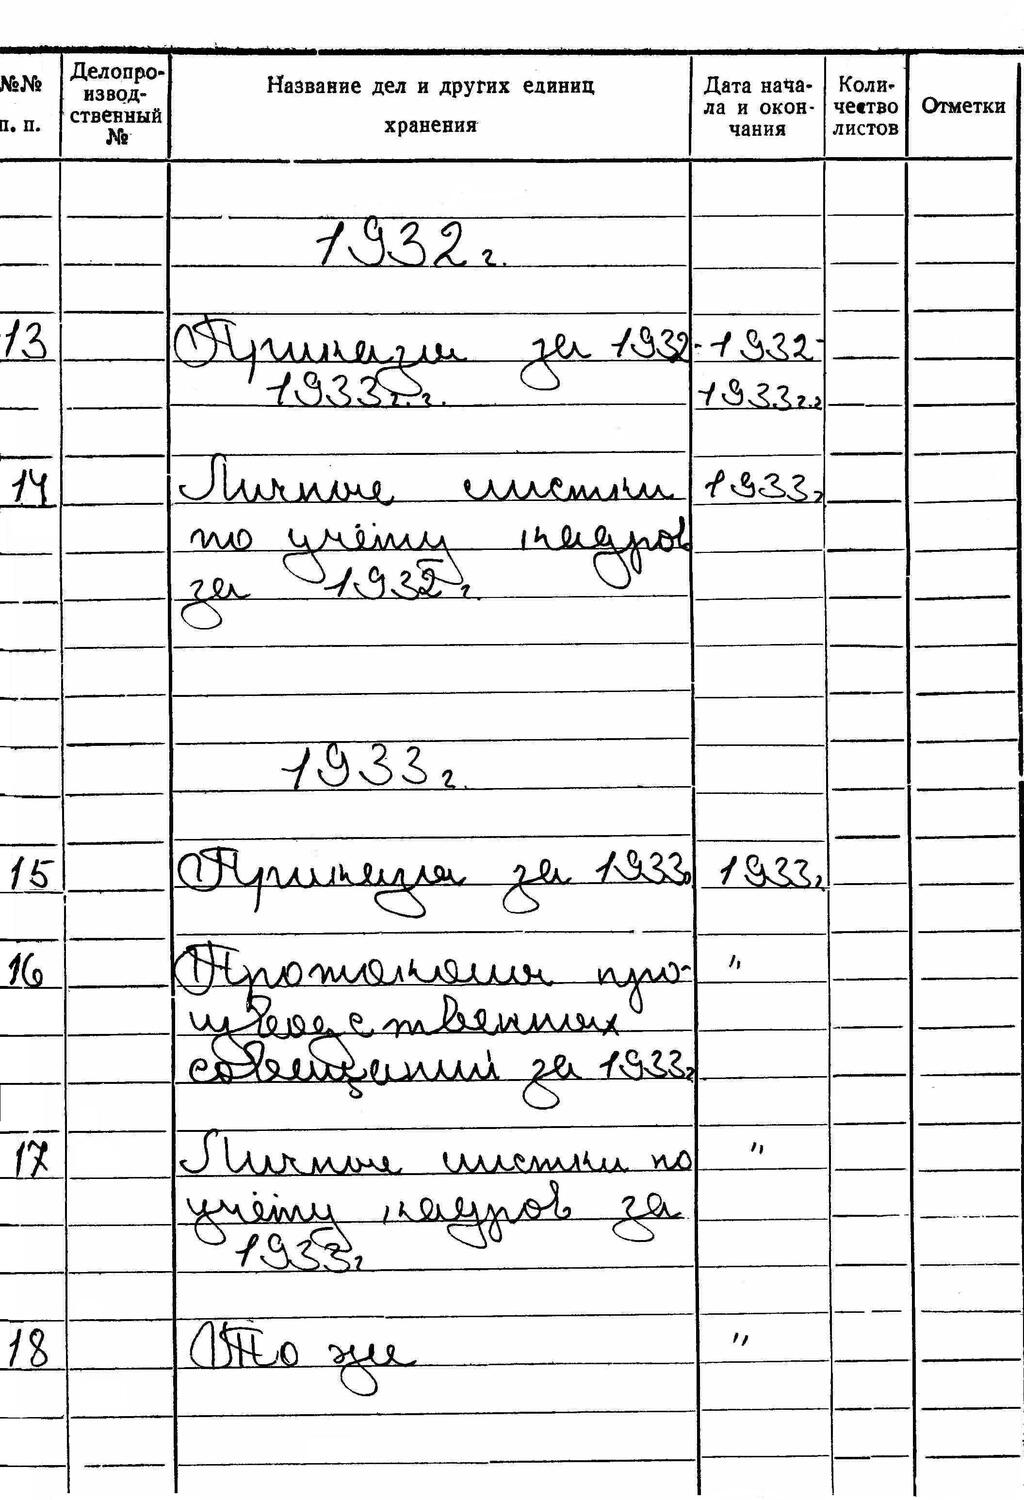 №№ п. п.
Делопро-
извод-
ственный
№
Название дел и других единиц
хранения
Дата нача-
ла и окон-
чания
Коли-
чество
листов
Отметки
1932 г.
13 Приказы за 1932- 1932-
1933 г.г. 1933 г.г
14 Личные листки 1933г
по учёту кадров
за 1932 г.
1933 г.
15 Приказы за 1933г 1933г
16 Протоколы про- "
изводственных
совещаний за 1933г
17 Личные листки по "
учёту кадров за
1933г
18 То же "